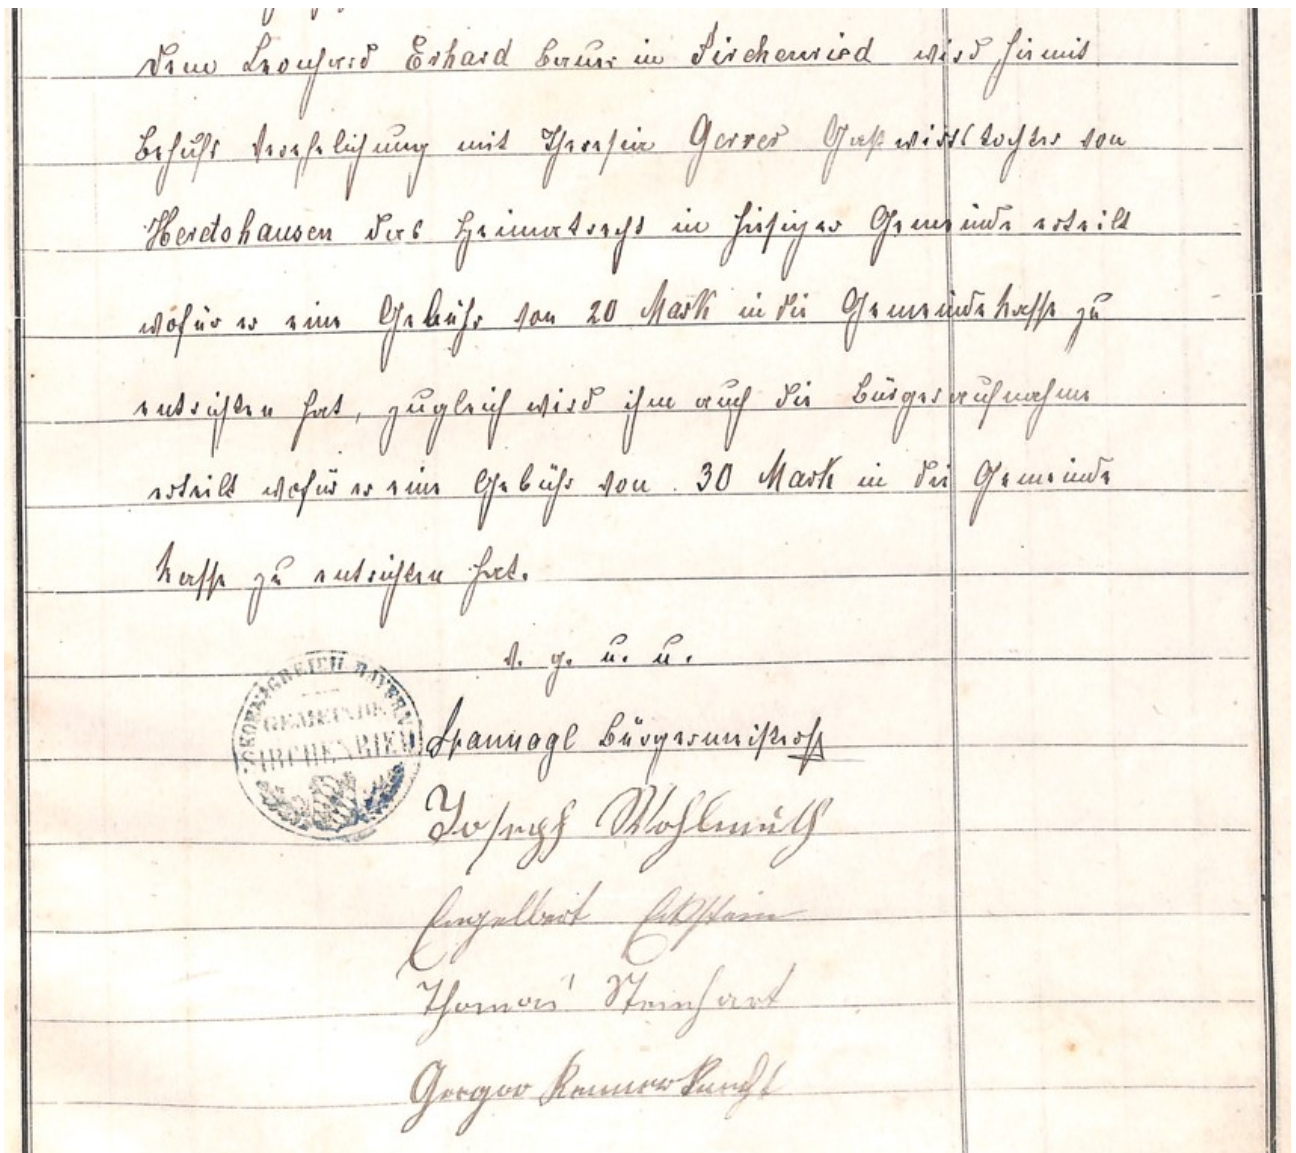 dem Leonhard Erhard Bauer in Kirchenried wird hiemit
behufs Verehelichung mit Theresia Gerrer Gastwirtstochter von
Heretshausen das Heimatrecht in hiesiger Gemeinde erteilt
wofür er eine Gebühr von 20 Mark in die Gemeindekasse zu
entrichten hat, zugleich wird ihm auch die Bürgeraufnahme
erteilt wofür er eine Gebühr von 30 Mark in die Gemeinde
kasse zu entrichten hat.
v. g. u. u.
KOENIGREICH BAYERN
GEMEINDE
KIRCHENRIED
Spannagl Bürgermeister
Joseph Wohlmuth
Engelbert Eckstein
Thomas Steinhart
Gregor